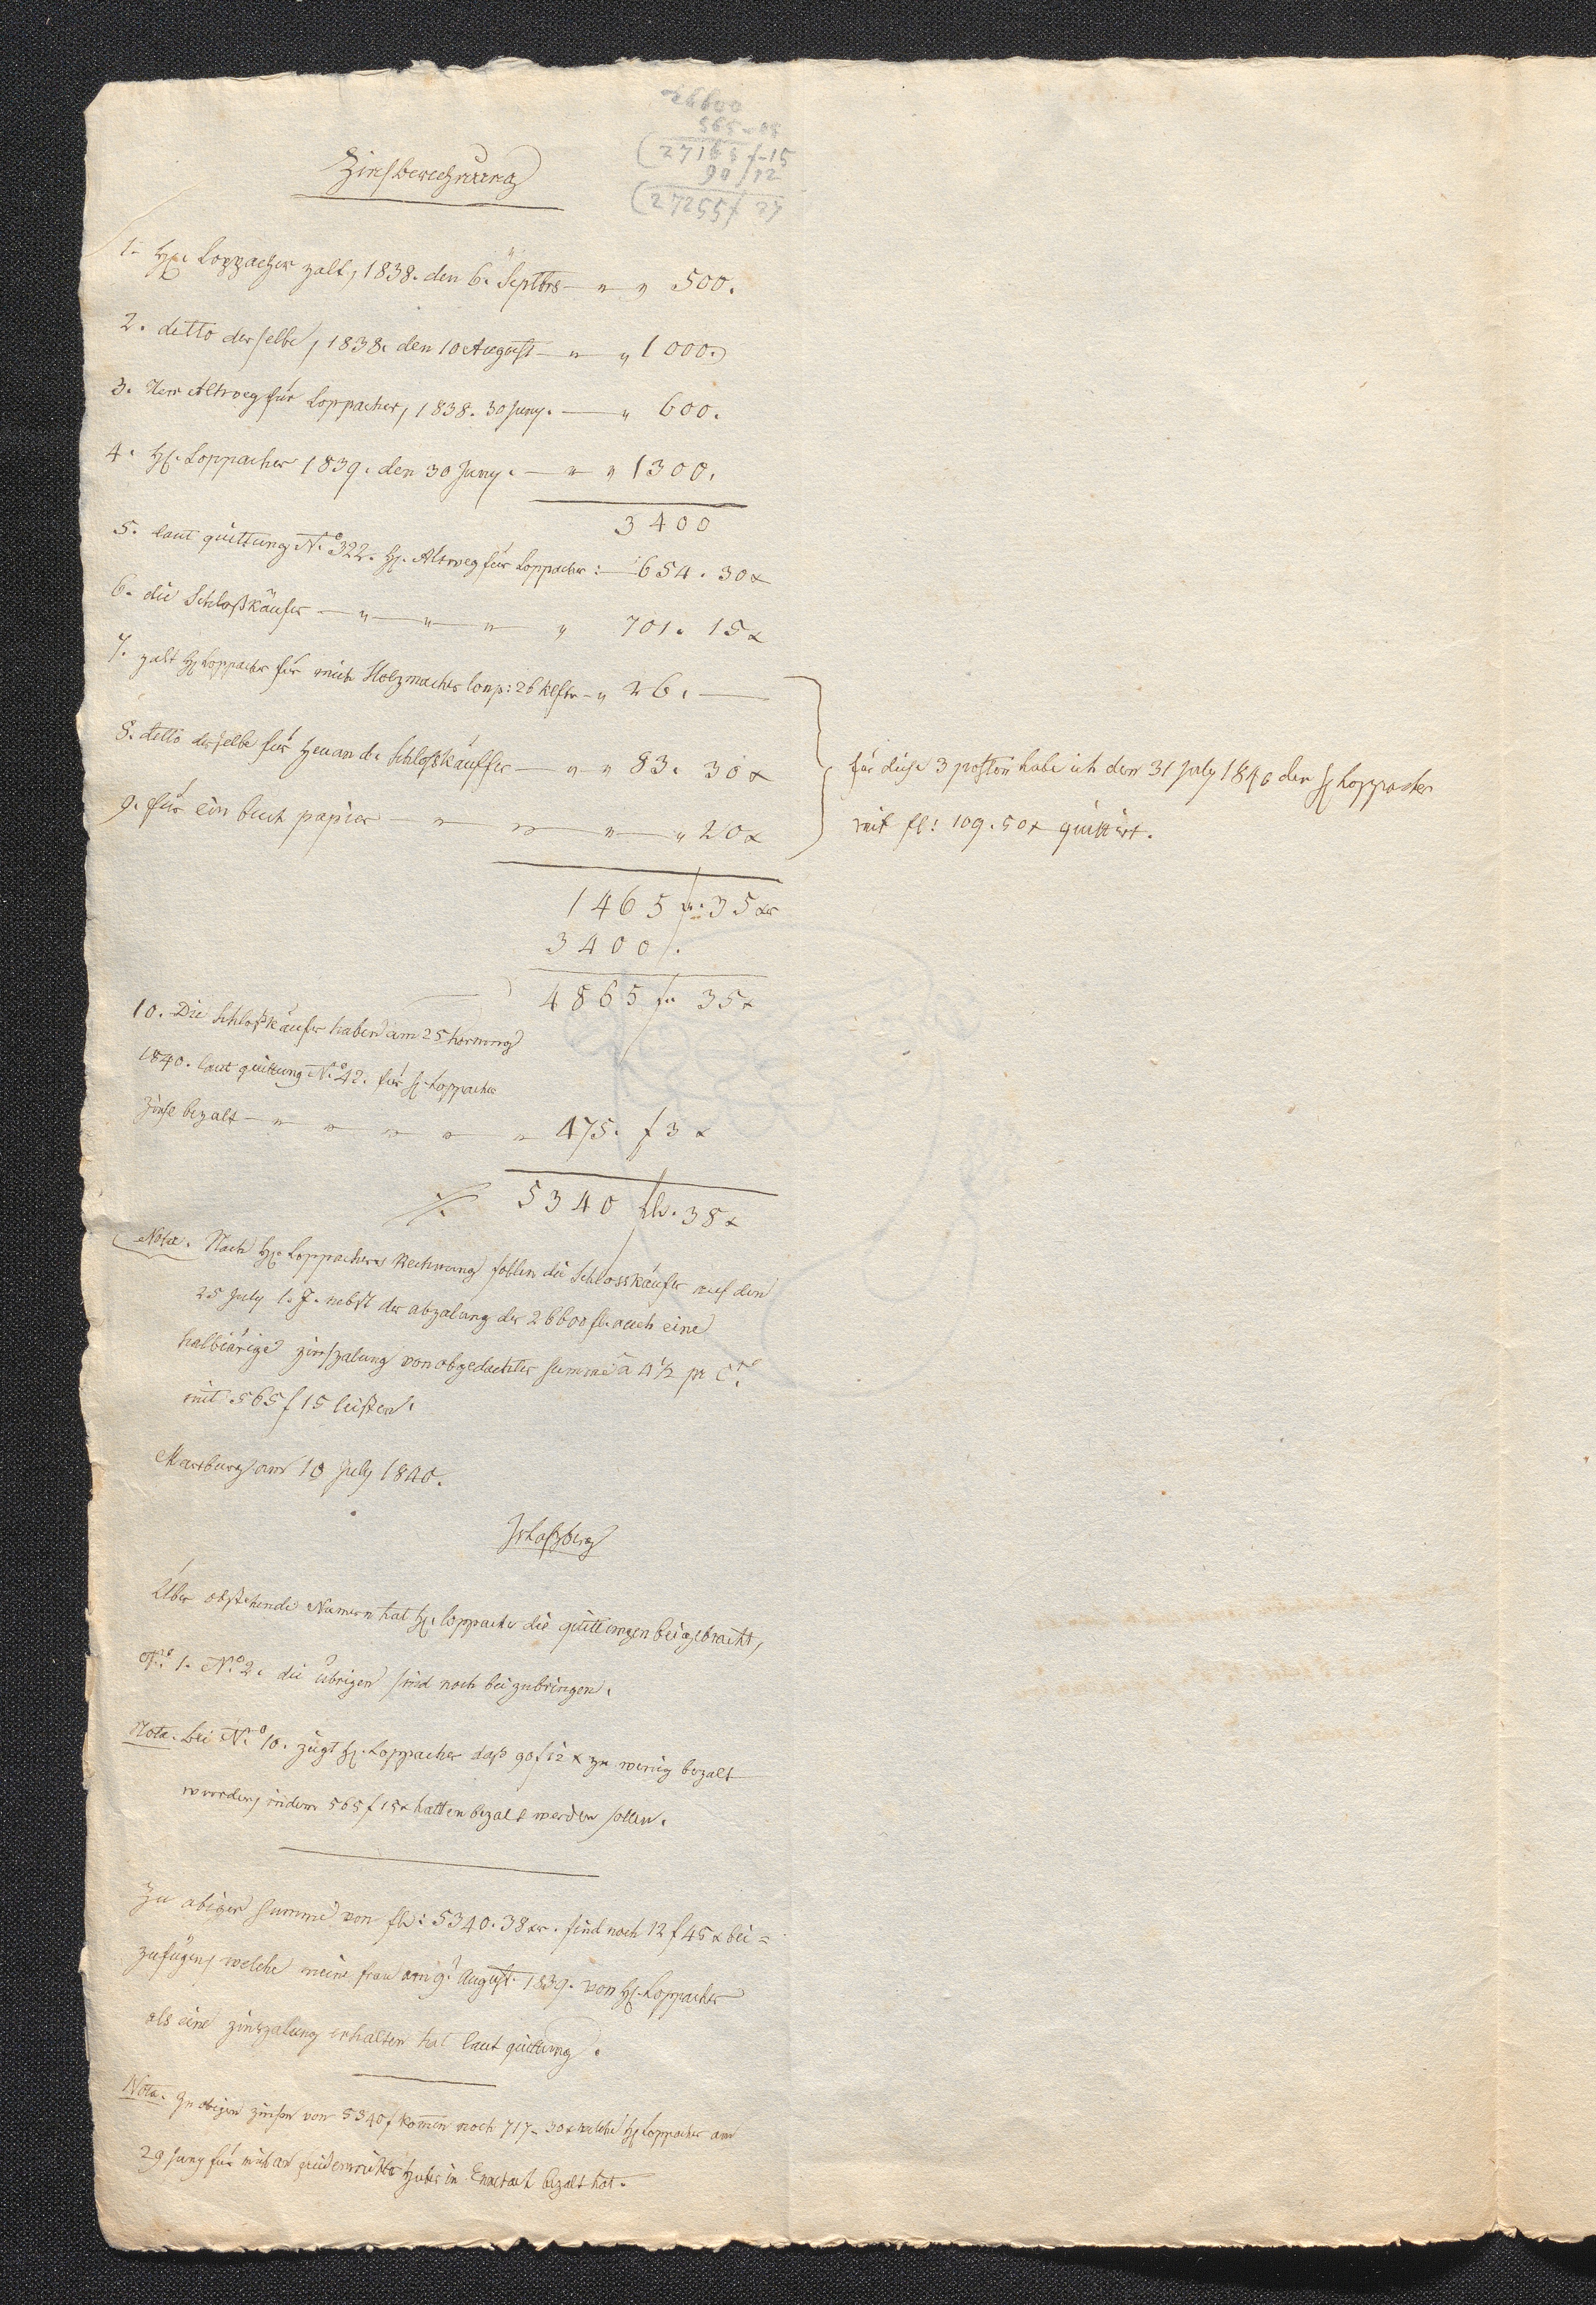 26600
565-15
27165 f-15
90 / 12
27255 f 27
Zinsberechnung
1. Hr. Loppacher zalt, 1838. den 6. Septbrs — " " 500.
2. detto derselbe, 1838. den 10 August — " " 1000.
3. Herr Altweg für Loppacher, 1838. 30 Juny. — " 600.
4. Hr. Loppacher 1839. den 30 Juny. — " " 1300.
3400
5. laut quittung No. 322. Hr. Altweg für Loppacher: — 654. 30x
6. die Schloßkäufer — " — " — " " 701. 15x
7. zalt Hr Loppacher für mich Holzmacherlon p: 26 klftr — " 26. —
8. detto derselbe für Heu an d. Schloßkäuffer — " " 83. 30x
9. für ein buch papier — " " " — " 20x
für diese 3 posten habe ich den 31 July 1840 den H Loppacher
mit fl: 109. 50x quittirt.
1465 f. 35xr
3400 f.
4865 f. 35x
10. Die Schloßkäufer haben am 25 Hornung
1840. laut quittung No. 42. für H. Loppacher
Zinse bezalt — " " " " " 475. f 3x
5340 fl. 38x
Nota. Nach Hr. Loppachers Rechnung sollen die Schlosskäufer auf den
25 July l. J. nebst der abzalung der 26600 fl. auch eine
halbjärige zinszalung von obgedachter summe à 4½ pr Cto.
mit 565 f 15 leisten.
Maersburg am 10 July 1840.
JvLaßberg
Über obstehende Numern hat Hr. Loppacher die quittungen beigebracht,
No. 1. No. 2. die übrigen sind noch beizubringen.
Nota. bei No. 10. zeigt Hr. Loppacher daß 90 f 12 x zu wenig bezalt
wurden, indem 565 f 15x hätten bezalt werden sollen.
Zu obiger summe von fl: 5340. 38xr. sind noch 12 f 45x bei=
zufügen, welche meine frau am 9. August. 1839. von Hr. Loppacher
als eine zinszalung erhalten hat laut quittung.
Nota. Zu obigen zinsen von 5340 f komen noch 717 - 30x welche Hr Loppacher am
29 Juny für mich an Huber in bezalt hat.